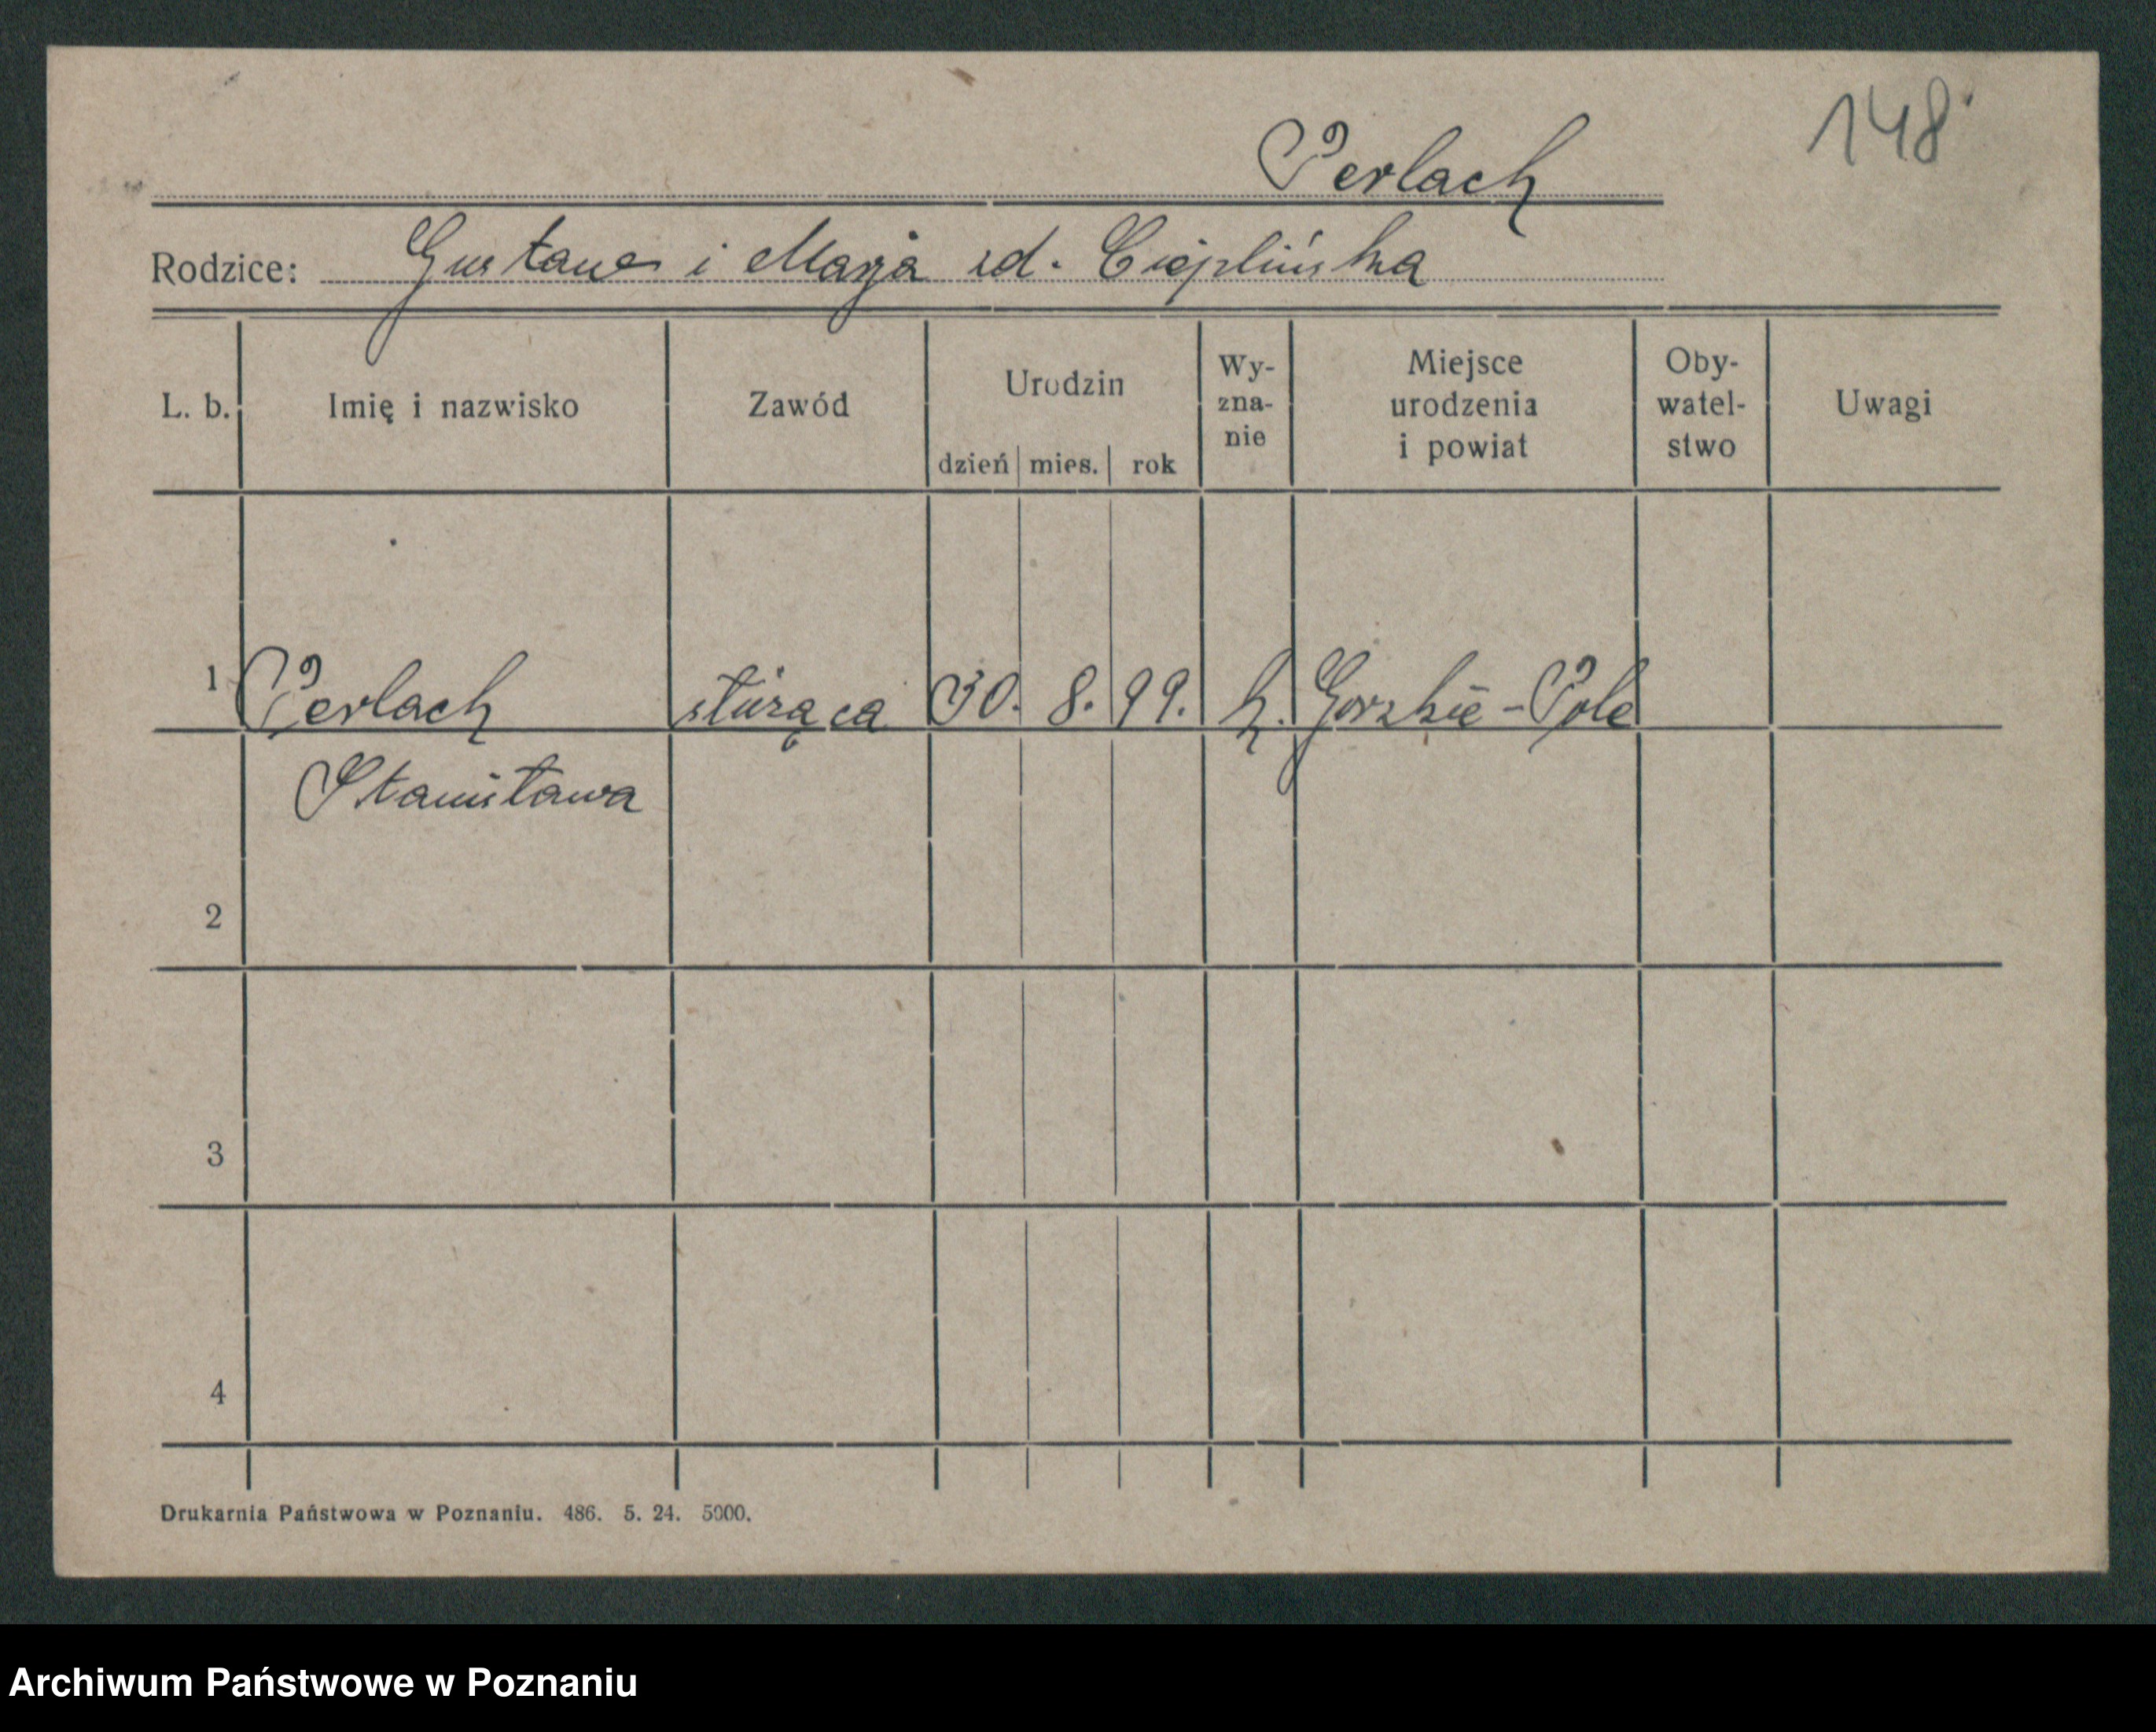 148
Perlach
Rodzice: Gustaw i Marja zd. Cieplińska
L. b. Imię i nazwisko Zawód Urodzin dzień mies. rok Wy-zna-nie Miejsce urodzenia i powiat Oby-watel-stwo Uwagi
1 Perlach służąca 30. 8. 99. k. Gorzkie-Pole
Stanisława
2
3
4
Drukarnia Państwowa w Poznaniu. 486. 5. 24. 5000.
Archiwum Państwowe w Poznaniu